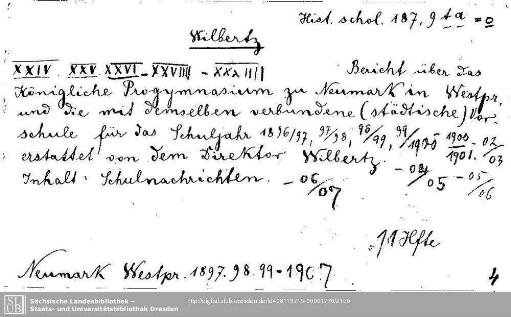 Hist. schol. 187, 9 ta = o
Wilbertz
XXIV XXV XXVI - XXVIIII - XXXIIII
Bericht über das
Königliche Progymnasium zu Neumark in Westpr.
und die mit demselben verbundene (städtische) Vor-
schule für das Schuljahr 1896/97, 97/98, 98/99, 99/1900 1900/1901 - 02/03
erstattet von dem Direktor Wilbertz.
Inhalt: Schulnachrichten. - 06/07 - 04/05 - 05/06
11 Hfte
Neumark Westpr. 1897. 98. 99-1907
4
SLUB
Sächsische Landesbibliothek –
Staats- und Universitätsbibliothek Dresden